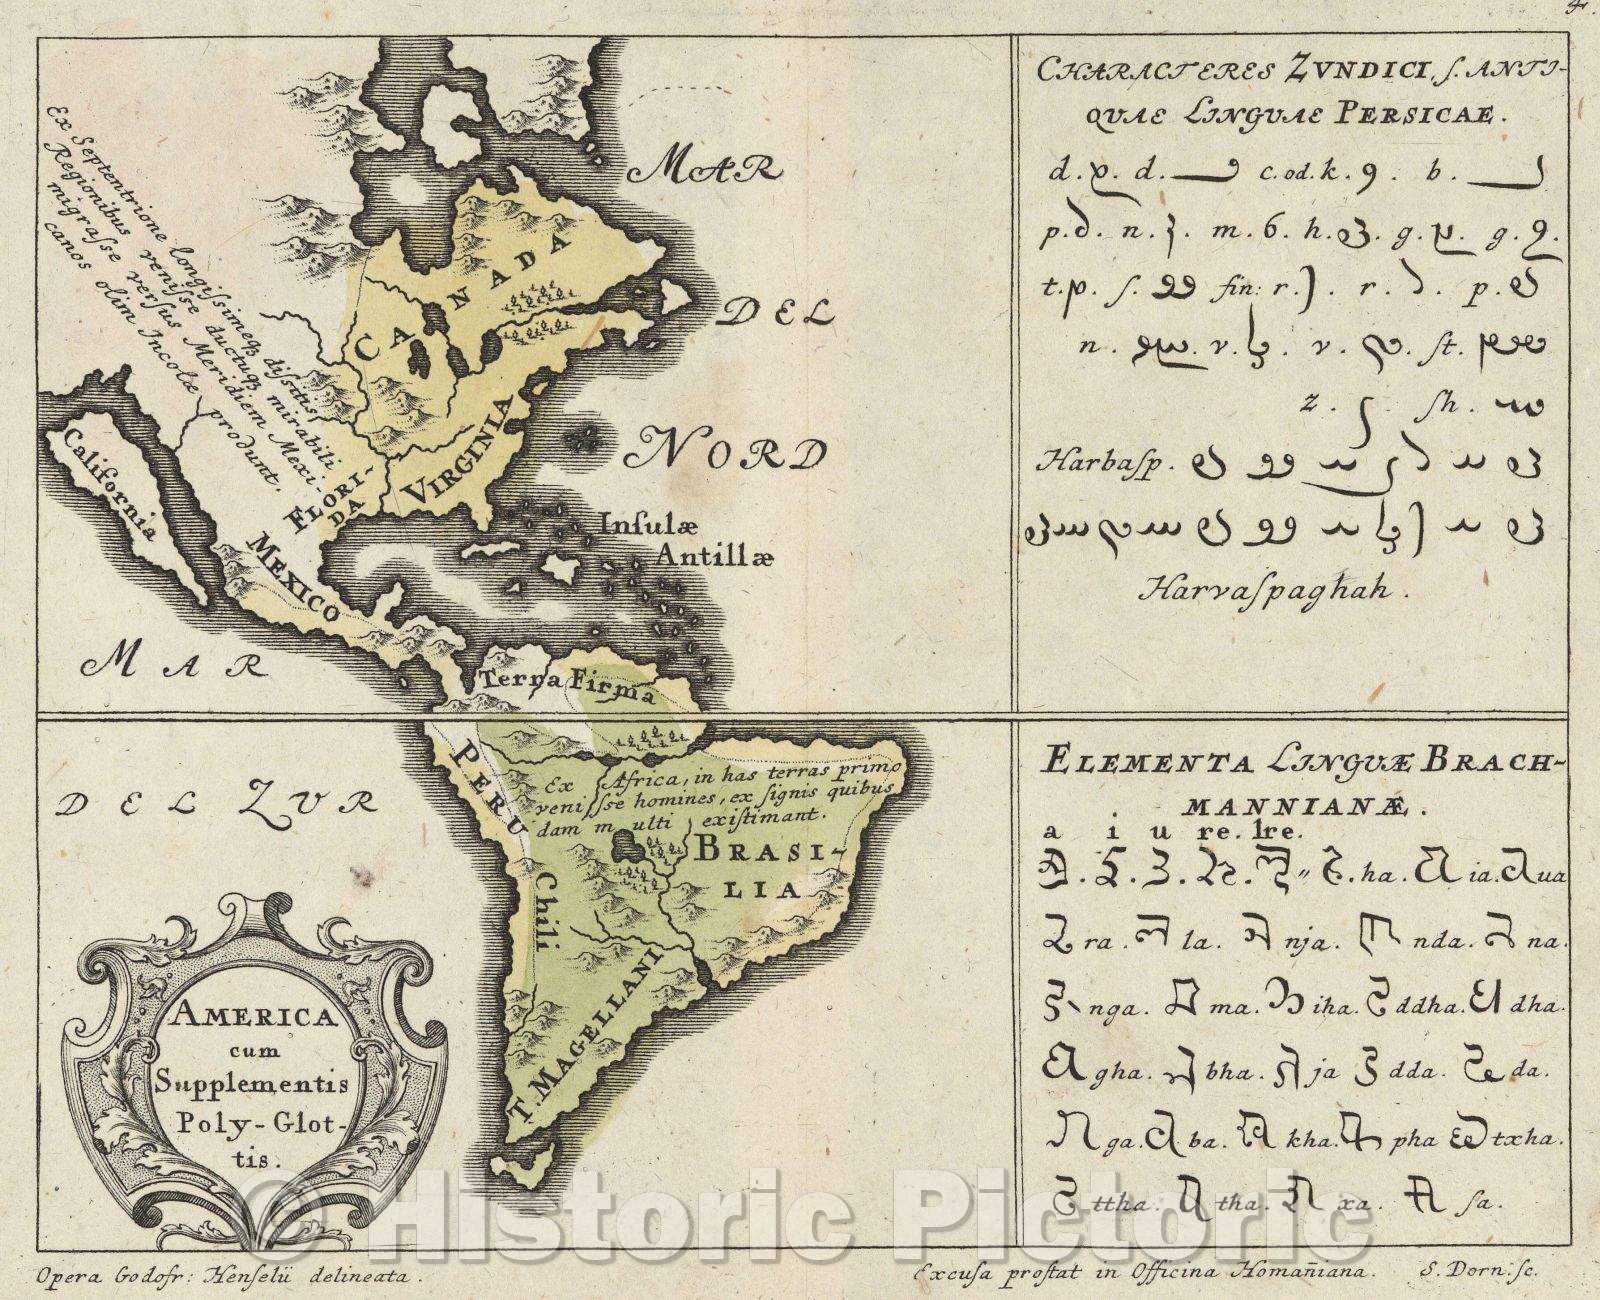 4.
Ex Septentrione longiſsimeq₃ diſsitis
Regionibus veniſse ductuq₃ mirabili
migraſse verſus Meridiem Mexi-
canos olim Incolæ produnt.
MAR
DEL
NORD
CANADA
VIRGINIA
FLORI-
DA
California
MEXICO
Inſulæ
Antillæ
Terra Firma
MAR
DEL ZVR
PERU
Ex Africa, in has terras primo
veniſse homines, ex ſignis quibus
dam multi exiſtimant.
BRASI-
LIA
Chili
T. MAGELLANI
AMERICA
cum
Supplementis
Poly-Glot-
tis.
CHARACTERES ZVNDICI, ſ. ANTI-
QVAE LINGVAE PERSICAE.
d. d. c. od. k. b.
p. n. m. h. g. g.
t. ſ. fin: r. r. p.
n. v. v. ſt.
z. ſh.
Harbaſp.
Harvaſpaghah.
ELEMENTA LINGUÆ BRACH-
MANNIANÆ.
a i u re. lre.
ha. ia. ua
ra. la. nja. nda. na.
nga. ma. iha. ddha. dha.
gha. bha. ja dda. da.
ga. ba. kha. pha txha.
ttha. tha. xa. ſa.
© Historic Pictoric
Opera Godofr: Henſelii delineata.
Excuſa proſtat in Officina Homañiana. S. Dorn: ſc.